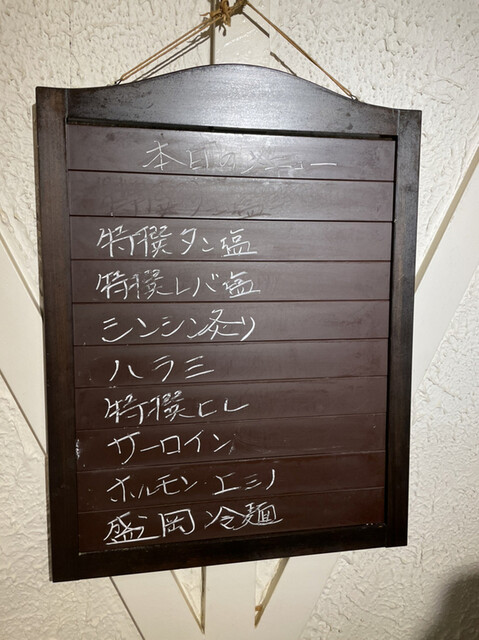 本日のメニュー
特撰タン塩
特撰レバ塩
シンシン炙り
ハラミ
特撰ヒレ
サーロイン
ホルモン エミノ
盛岡冷麺